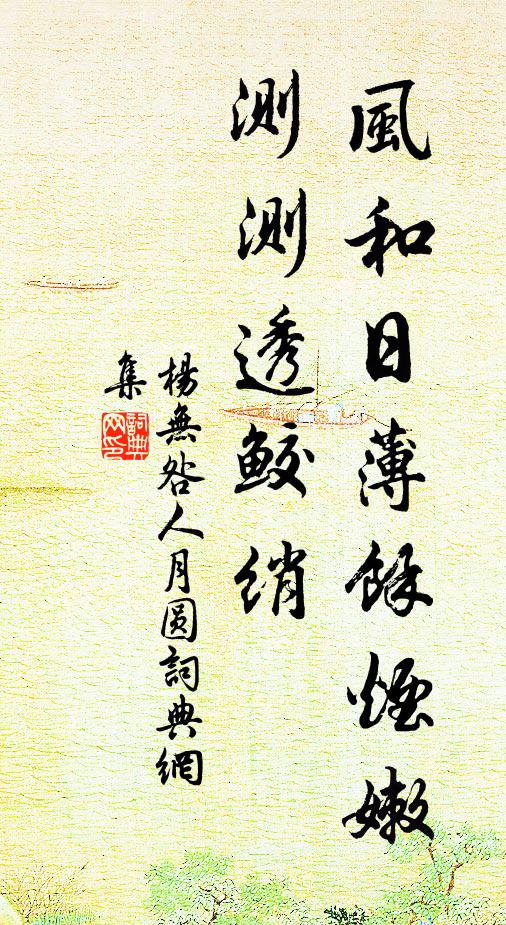 風和日薄餘煙嫩
測測透鮫綃
楊無咎人月圓詞典網
集
詞典網印